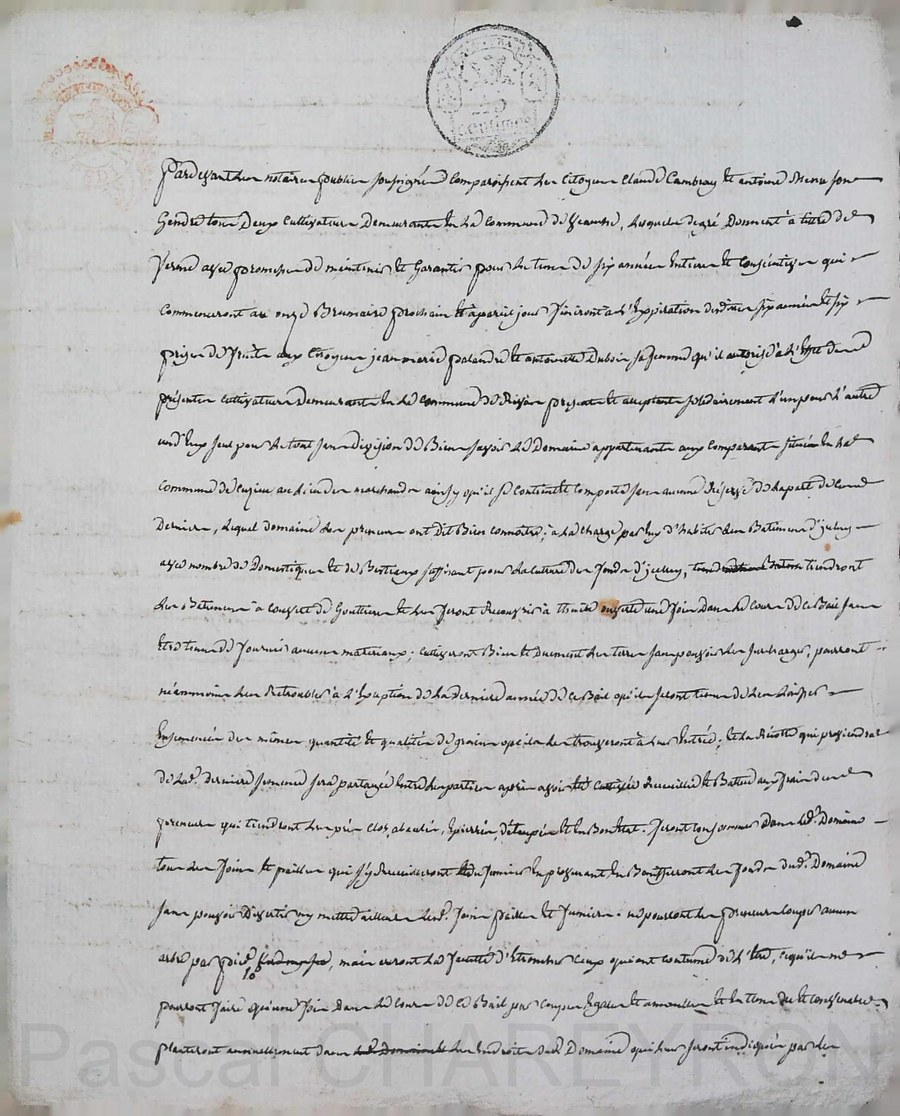 25
centimes
Pardevant les notaires publics soussignés comparoissent les Citoyens Claude Cambray et antoine son
Gendre tous Deux Cultivateurs Demeurants En la Commune de lesquels de gré Donnent à titre de
ferme avec promesse de maintenir et Garantir pour le tems de six années Entieres et Consécutives qui
Commenceront au onze Brumaire prochain et à pareil jour finiront à l'Expiration desdites six années et six
prises de fruits aux Citoyens jean marie et antoinette Dubois sa femme qu'il autorise à l'Effet des
présentes cultivateurs Demeurants En la Commune de présents et acceptants solidairement l'un pour l'autre
un d'Eux seul pour le tout sans Division de Biens savoir le Domaine appartenants aux Comparants situé En la
Commune de au lieu des marchands ainsy qu'il se Contient et Comporte sans aucune Réserve de la part de Ces
Derniers, lequel domaine les preneurs ont Dit Bien Connoître; à la charge par Eux d'habiter les Batiments d'iceluy
avec nombre de Domestiques et de Bestiaux suffisant pour la culture des fonds d'iceluy, tiendront
les Batiments à couvert de Gouttieres et les feront Recouvrir à thuile une fois Dans le Cours de ce Bail sans
Être tenus de fournir aucuns matériaux; Cultiveront Bien et Duement les terres sans pouvoir les surcharger, pourront
néanmoins les Retroubler à l'Exception de la derniere année de ce Bail qu'ils seront tenus de les laisser
Ensemencées des mêmes quantité et qualité de grains qu'ils les trouveront à leur Entrée; et la Récolte qui proviendra
de lad. Derniere semence sera partagée Entre les parties après avoir été Cultivée Recueillie et Battue aux frais des
preneurs qui tiendront les prés clos, Épierrés, Étaupés et En Bon État. feront Consommer Dans led. Domaine
tous les foins et pailles qui s'y Recueilleront et du fumier En provenant En Bonifieront les fonds dud. Domaine
sans pouvoir Divertir ny mettre ailleurs lesd. foins pailles et fumiers. ne pourront les preneurs Couper aucun
arbre par pied, mais auront la faculté d'Étroncher Ceux qui ont coutume de l'Être, Ce qu'ils ne
pourront faire qu'une fois Dans le Cours de ce Bail par Coupes Égalles et annuelles et En tems dû et Convenable.
planteront annuellement Dans les Endroits dud. Domaine qui leur seront indiqués par les
Pascal CHAREYRON